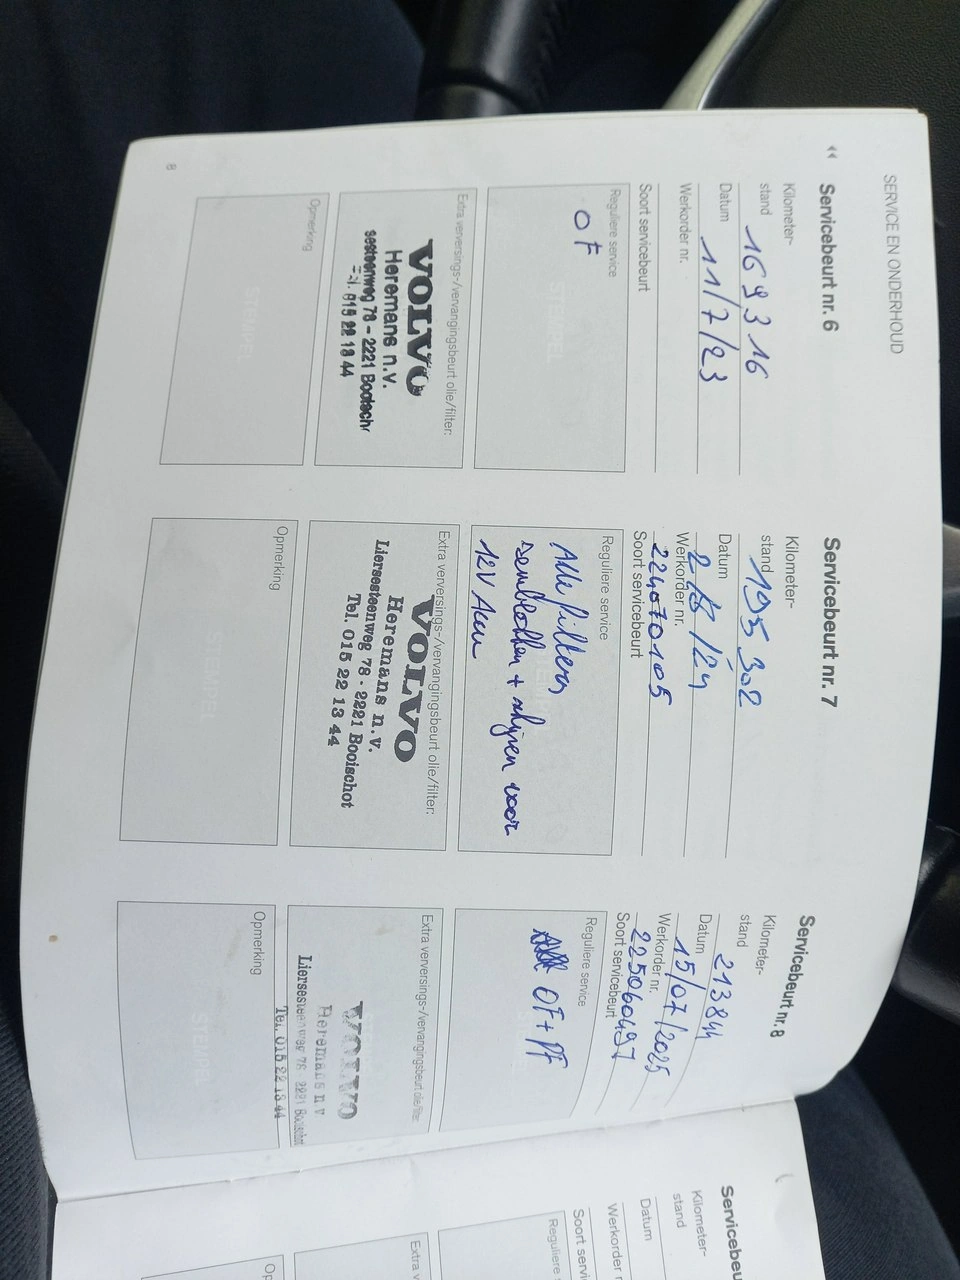 SERVICE EN ONDERHOUD
Servicebeurt nr. 6
Kilometer-
stand 169316
Datum 11/7/23
Werkorder nr.
Soort servicebeurt
Reguliere service
OF
Extra verversings-/vervangingsbeurt olie/filter:
VOLVO
Heremans n.v.
sesteenweg 78 - 2221 Booisch
Tel. 015 22 13 44
Opmerking
STEMPEL
8
Servicebeurt nr. 7
Kilometer-
stand 195302
Datum
Werkorder nr.
224070105
Soort servicebeurt
Reguliere service
Alle filters
remblokken + schijven voor
12V Accu
Extra verversings-/vervangingsbeurt olie/filter:
VOLVO
Heremans n.v.
Liersesteenweg 78 - 2221 Booischot
Tel. 015 22 13 44
Opmerking
Servicebeurt nr. 8
Kilometer-
stand 213844
Datum 15/07/2025
Werkorder nr.
225060497
Soort servicebeurt
Reguliere service
OF + PF
Extra verversings-/vervangingsbeurt olie/filter:
VOLVO
Heremans n.v
Liersesteenweg 78 2221 Booischot
Tel. 015 22 13 44
Opmerking
Servicebeu
Kilometer-
stand
Datum
Werkorder n
Soort servi
Reguliere
Extra v
Op